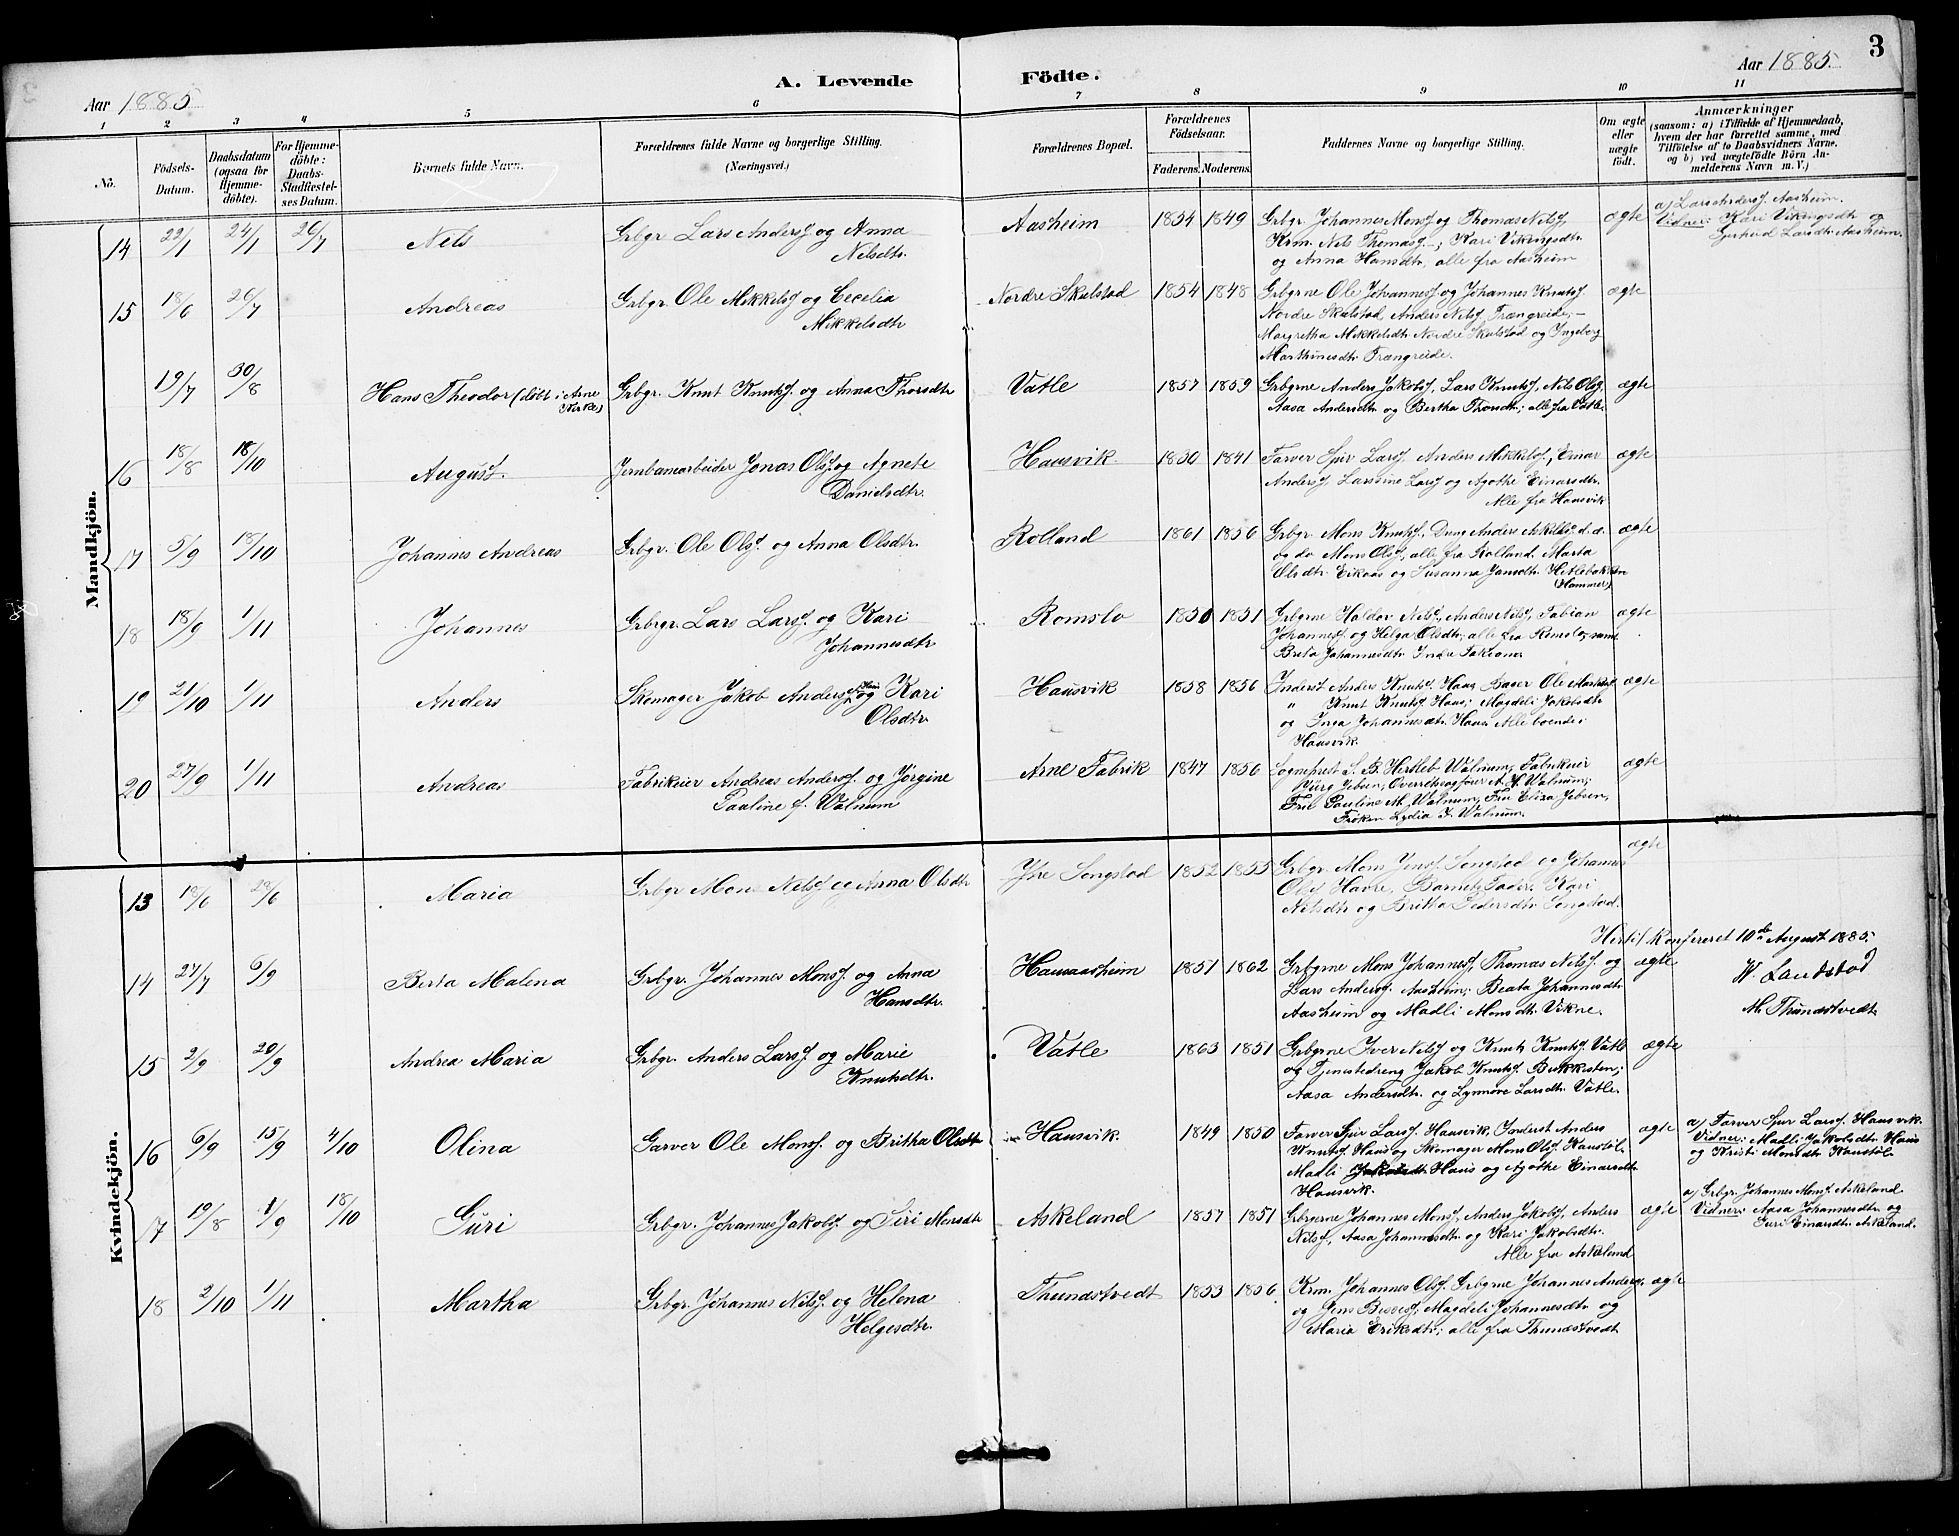 3
Aar 1885
A. Levende Födte.
Aar 1885.
1 2 3 4 5 6 7 8 9 10 11
No.
Födsels-Datum.
Daabsdatum (ogsaa for Hjemmedöbte).
For Hjemmedöbte: Daabs-Stadfæstelses Datum.
Barnets fulde Navn.
Forældrenes fulde Navne og borgerlige Stilling.
(Næringsvei.)
Forældrenes Bopæl.
Forældrenes Födselsaar.
Faderens. Moderens.
Faddernes Navne og borgerlige Stilling.
Om ægte eller uægte födt.
Anmærkninger
(saasom: a) i Tilfælde af Hjemmedaab, hvem der har forrettet samme, med Tilföielse af to Daabsvidners Navne, og b) ved uægtefödte Börn Anmelderens Navn m. V.)
Mandkjön.
14 22/1 24/1 26/7 Nels Grbgr. Lars Andersf og Anna Nelsdtr. Aasheim 1854 1849 Grbgr. Johannes Monsf og Thomas Nilsf, ægte a) Lars Andersf. Aasheim.
Krm. Nils Thomasf.; Kari Vikingsdtr. Vidner: Kari Vikingsdtr og
og Anna Hansdtr, alle fra Aasheim Gjertrud Larsdtr. Aasheim.
15 18/6 26/7 Andreas Grbgr. Ole Mikkelsf og Cecelia Mikkelsdtr Nordre Skulstad 1854 1848 Grbgrne Ole Johannesf og Johannes Knutsf ægte
Nordre Skulstad, Anders Nelsf Trængreide,
Margretha Mikkelsdtr. Nordre Skulstad og Ingeborg
Marthinusdtr. Trængreide.
19/7 30/8 Hans Theodor (döbt i Arne Kirke) Grbgr. Knut Knutsf. og Anna Thorsdtr Vatle 1857 1859 Grbgrne Anders Jakobsf, Lars Knutsf, Nils Olsf, ægte
Aasa Andersdtr og Bertha Thorsdtr; alle fra Vatle.
16 18/8 18/10 August. Jernbanearbeider Jonas Olsf og Agnete Danielsdtr. Hausvik 1850 1841 Farver Sjur Larsf, Anders Mikkelsf, Einar ægte
Andersf, Larsine Larsf og Agothe Einarsdtr.
Alle fra Hausvik
17 5/9 18/10 Johannes Andreas Grbgr. Ole Olsf. og Anna Olsdtr. Rolland 1861 1856 Grbgr. Mons Knutsf., Dreng Anders Askildsf d. a. ægte
og do Mons Olsf, alle fra Rolland. Marta
Olsdtr. Eikaas og Susanna Jansdtr. Hetlebakken
(Hammer)
18 18/9 1/11 Johannes Grbgr. Lars Larsf. og Kari Johannesdtr Romslo 1850 1851 Grbgrne Haldor Nelsf, Anders Nelsf, Fabian ægte
Johannesf. og Helga Olsdtr, alle fra Romslo, samt
Breta Johannesdtr. Indre
19 21/10 1/11 Anders Skomager Jakob Andersf og Kari Olsdtr Hausvik 1858 1856 Inderst Anders Knutsf. Haus, Bager Ole ægte
" Knut Knutsf Haus; Magdeli Jakobsdtr
og Inga Johannesdtr. Haus. Alle boende i
Hausvik.
20 27/9 1/11 Andreas Fabrikeier Andreas Andersf. og Jörgine Pauline f. Walnum Arne Fabrik 1847 1856 Sogneprest S. B. Hertleb Walnum, Fabrikeier ægte
Jürg Jebsen, Overretssagförer A. H. Walnum;
Fru Pauline M. Walnum, Fru Eliza Jebsen,
Fröken Lydia F. Walnum.
Kvindekjön.
13 18/6 28/6 Maria Grbgr Mons Nelsf og Anna Olsdtr Ytre Songstad 1852 1855 Grbgr. Mons Jensf Songstad og Johannes ægte
Olsf Havre, Barnets Fader. Kari
Nelsdtr og Britha Pedersdtr. Songstad.
Hertil konfereret 10de August 1885.
W. Landstad
M. Thunestvedt
14 27/7 6/9 Berta Malena Grbgr. Johannes Monsf. og Anna Hansdtr. Hausaasheim 1851 1862 Grbgrne Mons Johannesf, Thomas Nelsf og ægte
Lars Andersf. Aasheim; Beata Johannesdtr
Aasheim og Madli Monsdtr. Vikne.
15 2/9 20/9 Andrea Maria Grbgr. Anders Larsf. og Marie Knutsdtr. Vatle 1863 1851 Grbgrne Iver Nelsf og Knut Knutsf. Vatle ægte
og Tjenestedreng Jakob Knutsf Bukkesten;
Aasa Andersdtr. og Synnöve Larsdtr. Vatle.
16 6/9 15/9 4/10 Olina Garver Ole Monsf. og Britha Olsdtr Hausvik. 1849 1850 Farver Sjur Larsf. Hausvik, Inderst Anders ægte a) Farver Sjur Larsf. Hausvik.
Knutsf Haus og Skomager Mons Olsf. Haustöl. Vidner: Madli Jakobsdtr. Haus
Madli Jakobsdtr Haus og Agothe Einarsdtr og Kristi Monsdtr Haustöl.
Hausvik.
17 19/8 1/9 18/10 Guri Grbgr. Johannes Jakobsf og Siri Monsdtr Askeland 1857 1851 Grbgrne Johannes Monsf, Anders Jakobsf, Anders ægte a) Grbgr. Johannes Monsf. Askeland.
Nelsf, Aasa Johannesdtr og Kari Jakobsdtr. Vidner: Aasa Johannesdtr og
Alle fra Askeland Guri Einarsdtr. Askeland.
18 2/10 1/11 Martha Grbgr. Johannes Nelsf. og Helena Helgesdtr. Thunestvedt 1853 1856 Krm. Johannes Olsf. Grbgrne Johannes Andersf, ægte
og Jens ; Magdeli Johannesdtr og
Maria Eriksdtr; alle fra Thunestvedt